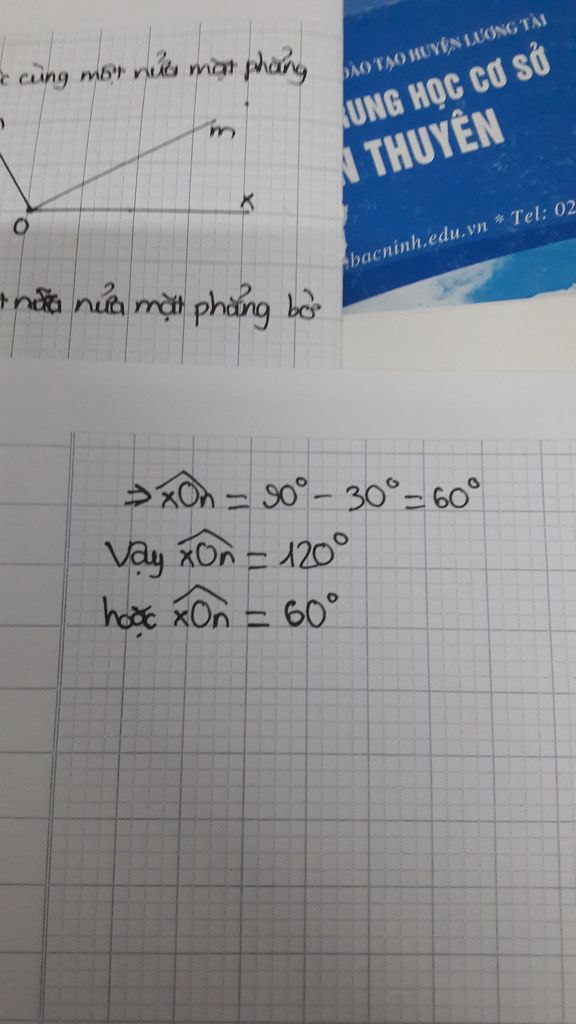 cùng một nửa mặt phẳng
m
x
O
nửa mặt phẳng bờ
ĐÀO TẠO HUYỆN LƯƠNG TÀI
UNG HỌC CƠ SỞ
THUYÊN
bacninh.edu.vn * Tel: 02
⇒ xOn = 90° - 30° = 60°
Vậy xOn = 120°
hoặc xOn = 60°